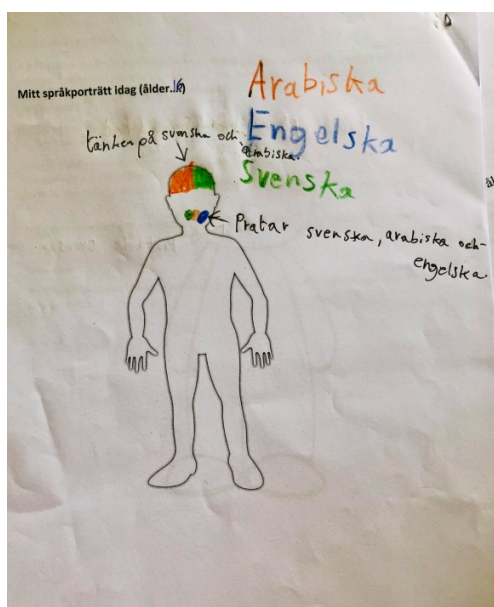 Mitt språkporträtt idag (ålder..16)
Arabiska
Engelska
Svenska
tänker på svenska och
arabiska.
Pratar svenska, arabiska och
engelska.